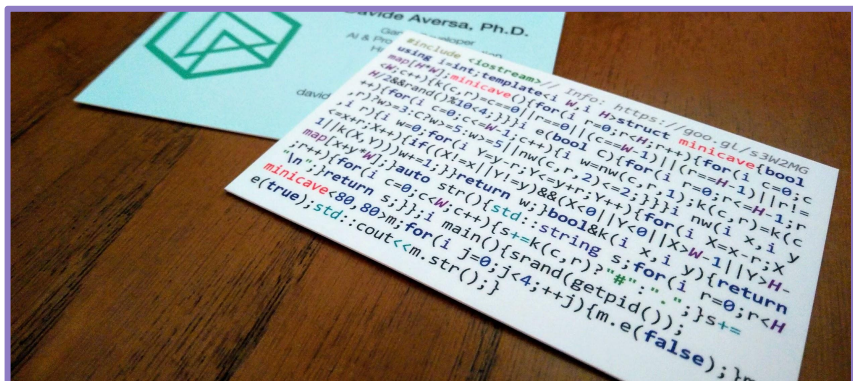 Davide Aversa, Ph.D.
AI &
david
#include <iostream>// Info: https://goo.gl/s3W2MG
using i=int;template<i W,i H>struct minicave{bool
map[H*W];minicave(){for(i r=0;r<H;r++){for(i c=0;c
<W;c++){k(c,r)=c==0||r==0||(c==W-1)||(r==H-1)||r!=
H/2&&rand()%10<4;}}}i e(bool c){for(i r=0;r<=H-1;r
++){for(i c=0;c<=W-1;c++){i w=nw(c,r,1);k(c,r)=k(c
,r)?w>=3:c?w>=5:w>=5||nw(c,r,2)<=2;}}}i nw(i x,i y
,i r){i w=0;for(i Y=y-r;Y<=y+r;Y++){for(i X=x-r;X<
=x+r;X++){if((X!=x||Y!=y)&&(X<0||Y<0||X>W-1||Y>H-
1||k(X,Y)))w+=1;}}return w;}bool&k(i x,i y){return
map[x+y*W];}auto str(){std::string s;for(i r=0;r<H
;r++){for(i c=0;c<W;c++){s+=k(c,r)?"#":".";}s+=
"\n";}return s;}};i main(){srand(getpid());
minicave<80,80>m;for(i j=0;j<4;++j){m.e(false);}m.
e(true);std::cout<<m.str();}